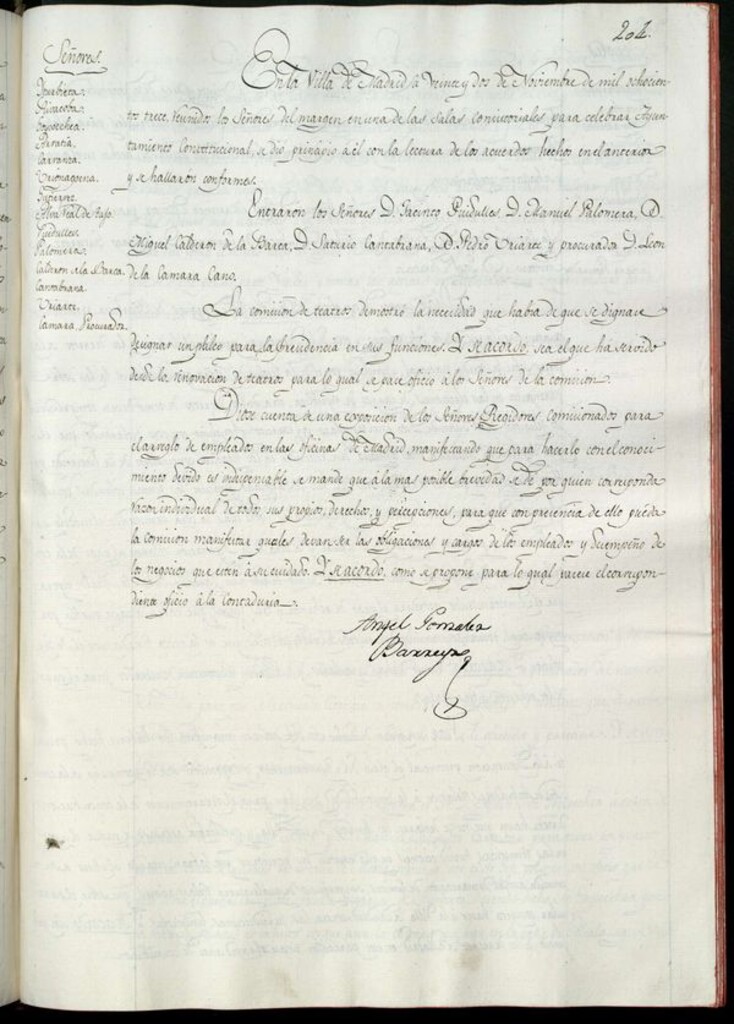 204.
Señores.
Yturbieta.
Aravaca.
Goycoechea.
Arratia.
Carranca.
Urionagoena.
Gutierrez.
Alva Real de Tajo.
Puidulles.
Palomera.
Calderon de la Barca.
Cantabrana.
Uriarte.
Camara, Procurador.
En la Villa de Madrid à Veinte y dos de Noviembre de mil ochocien-
tos trece, reunidos los Señores del margen en una de las Salas Consistoriales para celebrar Ayun-
tamiento Constitucional, se dio principio à él con la lectura de los acuerdos hechos en el anterior
y se hallaron conformes.
Entraron los Señores D. Jacinto Puidulles, D. Manuel Palomera, D.
Miguel Calderon de la Barca, D. Saturio Cantabrana, D. Pedro Uriarte y procurador D. Leon
de la Camara Cano.
La comision de teatros demostró la necesidad que habia de que se dignase
designar un palco para la Presidencia en sus funciones. Y se acordo, sea el que ha servido
desde la renovacion de teatros para lo qual se pase oficio à los Señores de la comision.
Diose cuenta de una exposicion de los Señores Regidores comisionados para
el arreglo de empleados en las oficinas de Madrid, manifestando que para hacerlo con el conoci-
miento debido es indispensable se mande que à la mas posible brevedad se dé por quien corresponda
razon individual de todos sus propios, derechos, y percepciones, para que con presencia de ello pueda
la comision manifestar quales devan ser las obligaciones y cargos de los empleados y desempeño de
los negocios que esten à su cuidado. Y se acordó, como se propone para lo qual pasese el correspon-
diente oficio à la Contaduria.
Angel Gonzalez
Barreyro